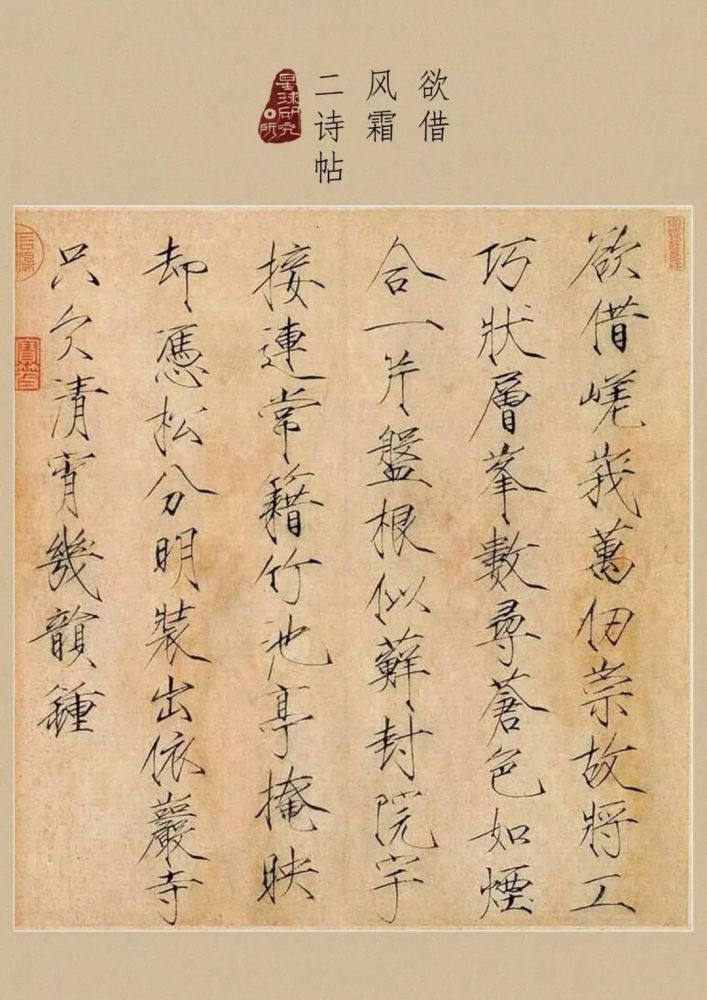 欲借
风霜
二诗帖
星球研究所
欲借嵯峩萬仞崇故將工
巧狀層峯數尋蒼色如煙
合一片盤根似蘚封院宇
接連常籍竹池亭掩映
却憑松分明裝出依巖寺
只欠清宵幾韻鍾